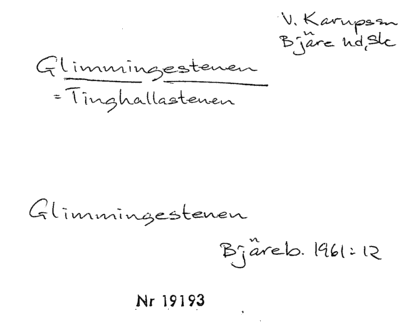 V. Karups sn
Bjäre hd, Skå
Glimmingestenen
= Tinghallastenen
Glimmingestenen
Bjäreb. 1961:12
Nr 19193